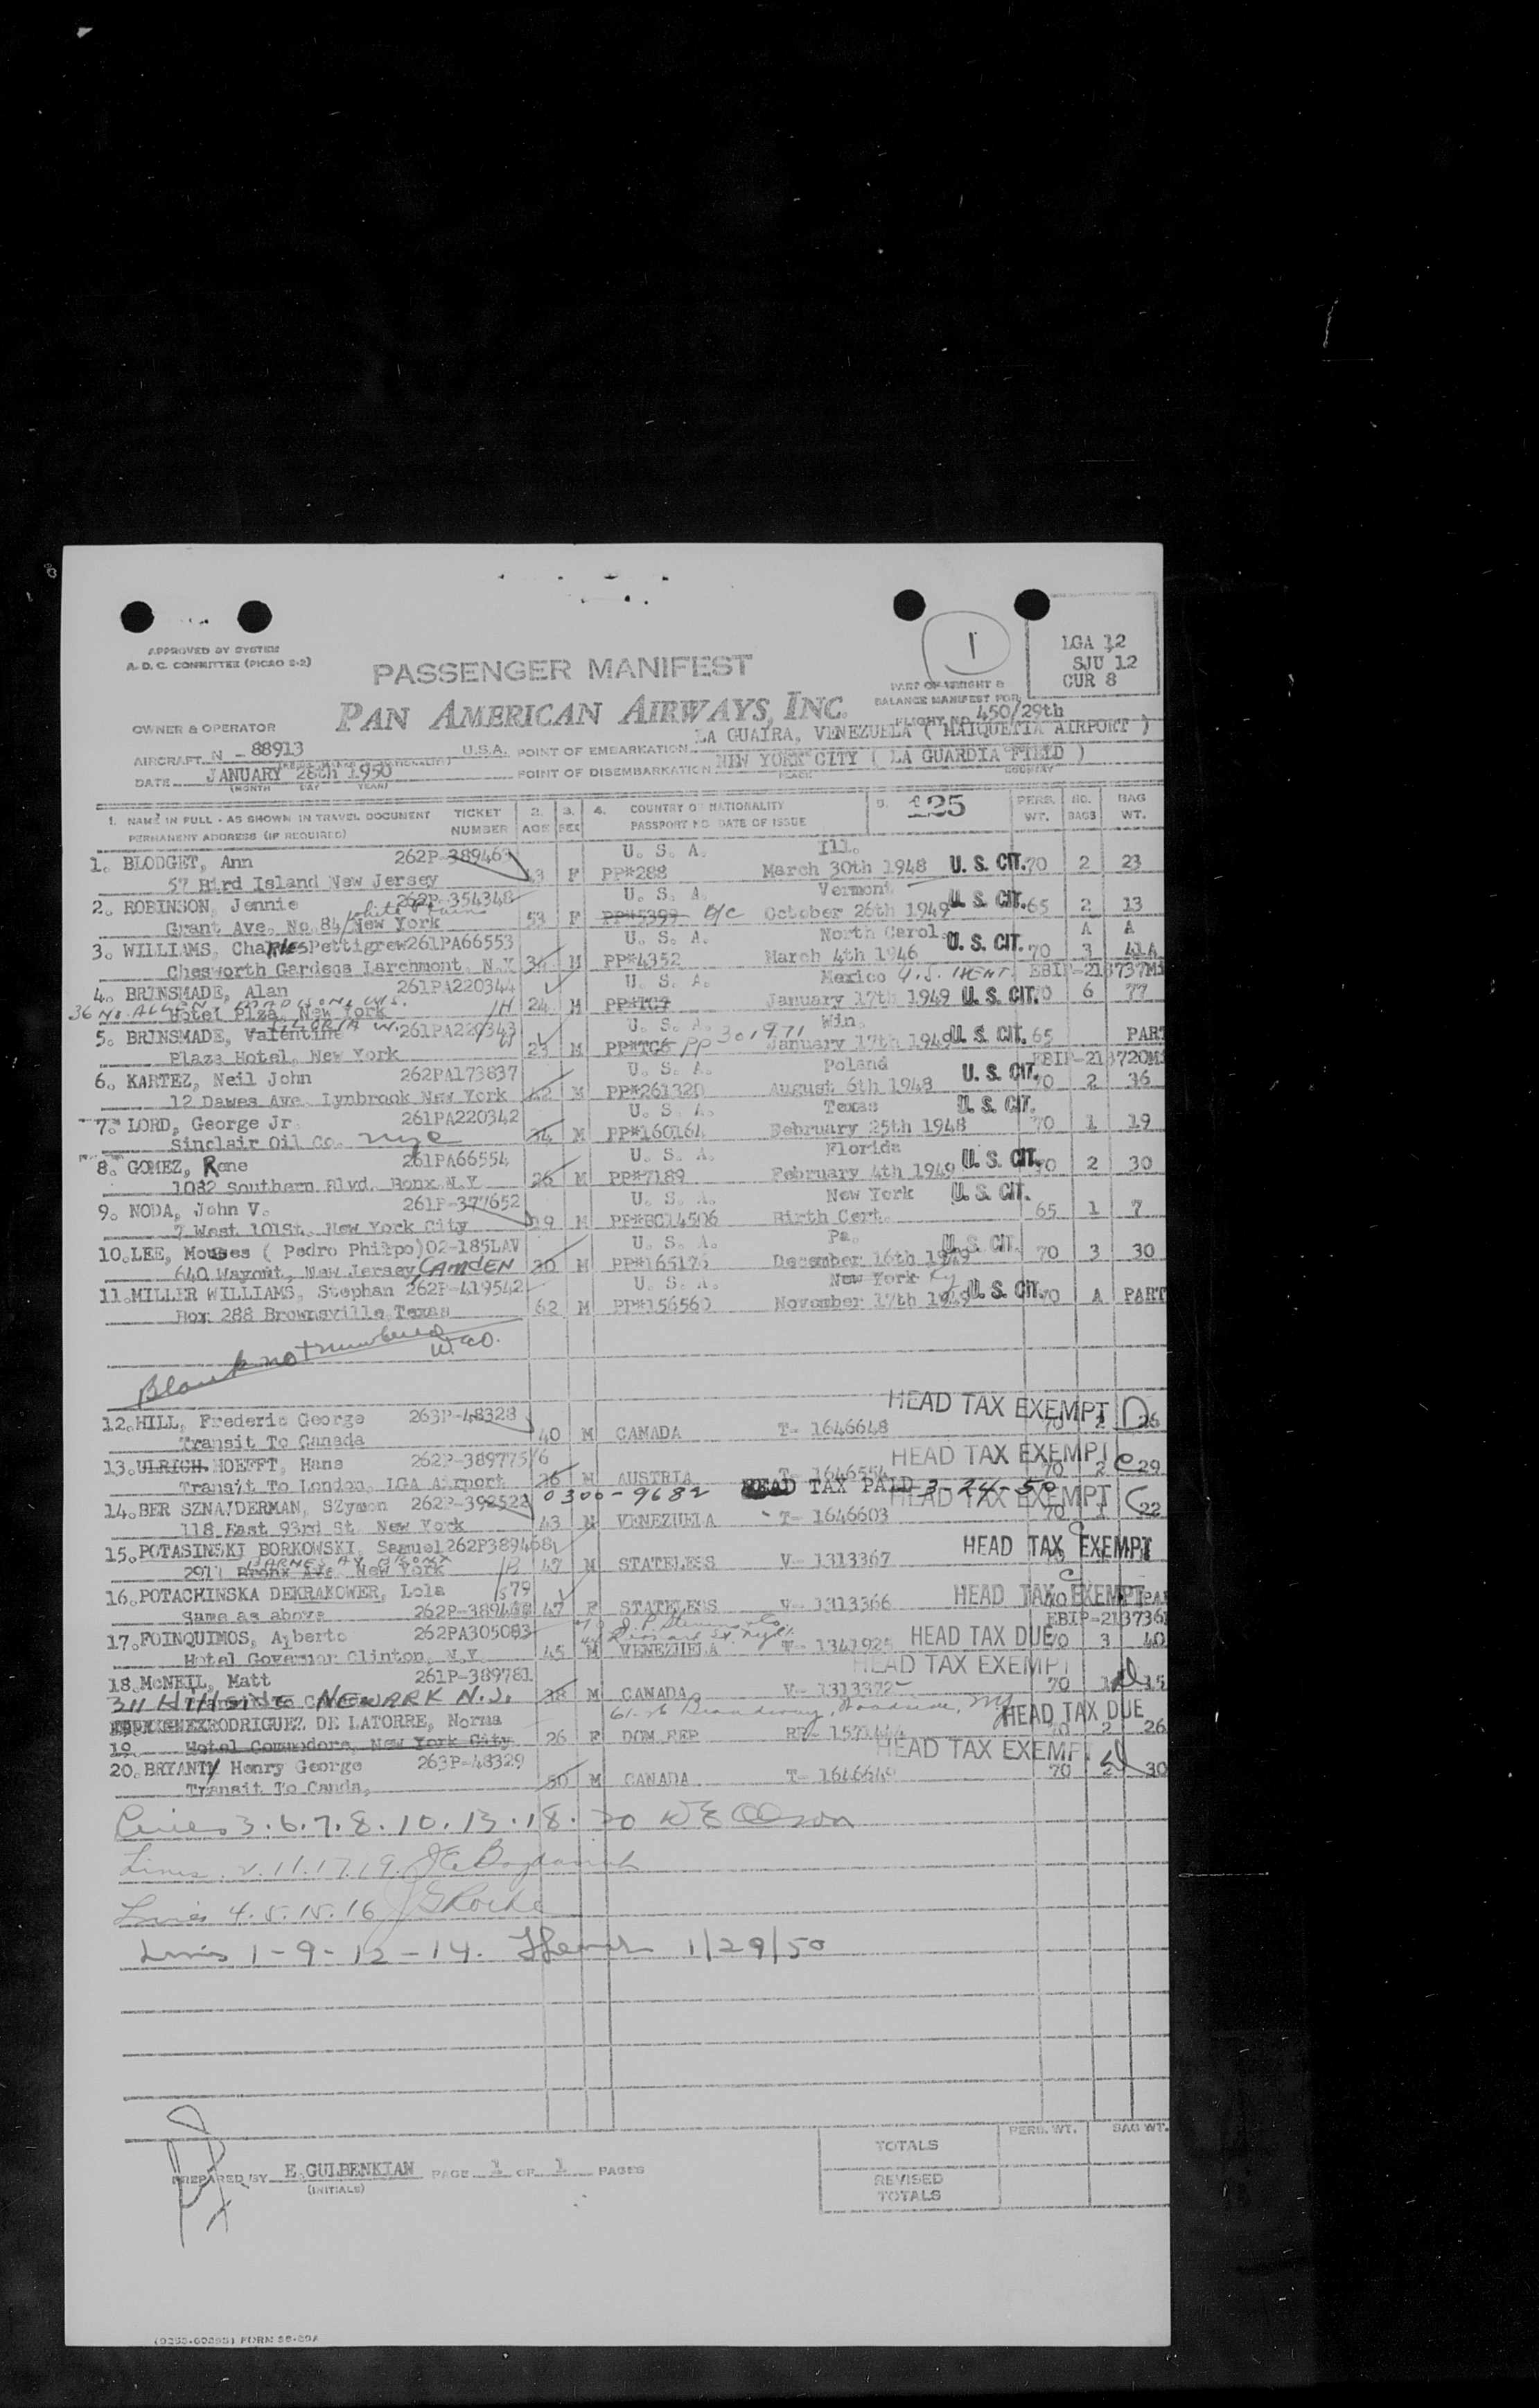 1
LGA 12
SJU 12
CUR 8
APPROVED BY SYSTEM
A. D. C. COMMITTEE (PICAO 2-2)
PASSENGER MANIFEST
PART OF WEIGHT &
BALANCE MANIFEST FOR
FLIGHT NO. 450/29th
PAN AMERICAN AIRWAYS, INC.
OWNER & OPERATOR
AIRCRAFT N - 88913 U.S.A. POINT OF EMBARKATION LA GUAIRA, VENEZUELA ( MAIQUETIA AIRPORT )
DATE JANUARY 28th 1950 POINT OF DISEMBARKATION NEW YORK CITY ( LA GUARDIA FIELD )
(MONTH DAY YEAR) COUNTRY
1. NAME IN FULL - AS SHOWN IN TRAVEL DOCUMENT TICKET 2. 3. 4. COUNTRY OF NATIONALITY 5. 125 PERS. NO. BAG
PERMANENT ADDRESS (IF REQUIRED) NUMBER AGE SEX PASSPORT NO DATE OF ISSUE WT. BAGS WT.
1. BLODGET, Ann 262P-389463 U. S. A. Ill.
57 Bird Island New Jersey F PP*288 March 30th 1948 U. S. CIT. 70 2 23
2. ROBINSON, Jennie 262P-354348 U. S. A. Vermont
Grant Ave. No 84/New York White Plain 53 F PP*5399 B/C October 26th 1949 U. S. CIT. 65 2 13
3. WILLIAMS, Charles Pettigrew 261PA66553 U. S. A. North Carol. A A
Chesworth Gardens Larchmont, N.Y M PP*4352 March 4th 1946 U. S. CIT. 70 3 41A
4. BRINSMADE, Alan 261PA220344 U. S. A. Mexico EBIP-213737Mi
Hotel Plza, New York 24 M PP*TC7 January 17th 1949 U. S. CIT. 70 6 77
5. BRINSMADE, Valentine GLORIA W. 261PA220343 U. S. A. Win.
Plaza Hotel, New York 23 M PP*TC6 PP 301971 January 17th 1949 U. S. CIT. 65 PART
6. KARTEZ, Neil John 262PA173837 U. S. A. Poland EBIP-213720Mi
12 Dawes Ave. Lynbrook New York 42 M PP*261320 August 6th 1948 U. S. CIT. 70 2 36
7. LORD, George Jr 261PA220342 U. S. A. Texas U. S. CIT.
Sinclair Oil Co. nyc 34 M PP*160164 February 25th 1948 70 1 19
8. GOMEZ, Rene 261PA66554 U. S. A. Florida
1082 Southern Blvd. Bonx N.Y 26 M PP*7189 February 4th 1949 U. S. CIT. 70 2 30
9. NODA, John V. 261P-377652 U. S. A. New York U. S. CIT.
7 West 101St. New York City 19 M PP*BC14506 Birth Cert. 65 1 7
10. LEE, Mouses ( Pedro Philpo) 02-185LAV U. S. A. Pa. U. S. CIT.
640 Wayout, New Jersey CAMDEN 30 M PP*165176 December 16th 1949 70 3 30
11. MILLER WILLIAMS, Stephan 262P-419542 U. S. A. New York Ky
Box 288 Brownsville Texas 62 M PP*156560 November 17th 1949 U. S. CIT. 70 A PART
Blank not numbered
12. HILL, Frederic George 263P-48328 HEAD TAX EXEMPT
Transit To Canada 40 M CANADA T- 1646648 70 2 26
13. ULRICH. HOEFFT, Hans 262P-389775/6 HEAD TAX EXEMPT
Transit To London, LGA Airport 36 M AUSTRIA T- 1646554 70 2 29
0300-9682 HEAD TAX PAID 3-24-50
14. BER SZNAJDERMAN, SZymon 262P-392522 HEAD TAX EXEMPT
118 East 93rd St. New York 43 M VENEZUELA T- 1646603 70 1 22
15. POTASINSKI BORKOWSKI, Samuel 262P389468 HEAD TAX EXEMPT
2911 Bronx Ave New York BARNES AV BRONX 47 M STATELESS V- 1313367
16. POTACHINSKA DEKRAKOWER, Lola 79 HEAD TAX EXEMPT
Same as above 262P-3894 47 F STATELESS V- 1313366
EBIP-213736
17. FOINQUIMOS, Alberto 262PA305083 HEAD TAX DUE
Hotel Governor Clinton, N.Y. 45 M VENEZUELA T- 1341925 70 3 40
18. McNEIL, Matt 261P-389781 HEAD TAX EXEMPT
311 HILLSIDE NEWARK N.J. 38 M CANADA V- 1313372 70 1 15
RODRIGUEZ DE LATORRE, Norma 61-26 Broadway, Woodside, NY HEAD TAX DUE
19. Hotel Commodore, New York City 26 F DOM REP 70 2 26
20. BRYANT, Henry George 263P-48329 HEAD TAX EXEMP
Transit To Canda, 50 M CANADA T- 1646649 70 2 30
Lines 3. 6. 7. 8. 10. 13. 18. 20
Lines 2. 11. 17. 19.
Lines 4. 5. 15. 16
Lines 1 - 9 - 12 - 14. 1/29/50
TOTALS PERS. WT. BAG WT.
REVISED
TOTALS
PREPARED BY E. GULBENKIAN PAGE 1 OF 1 PAGES
(INITIALS)